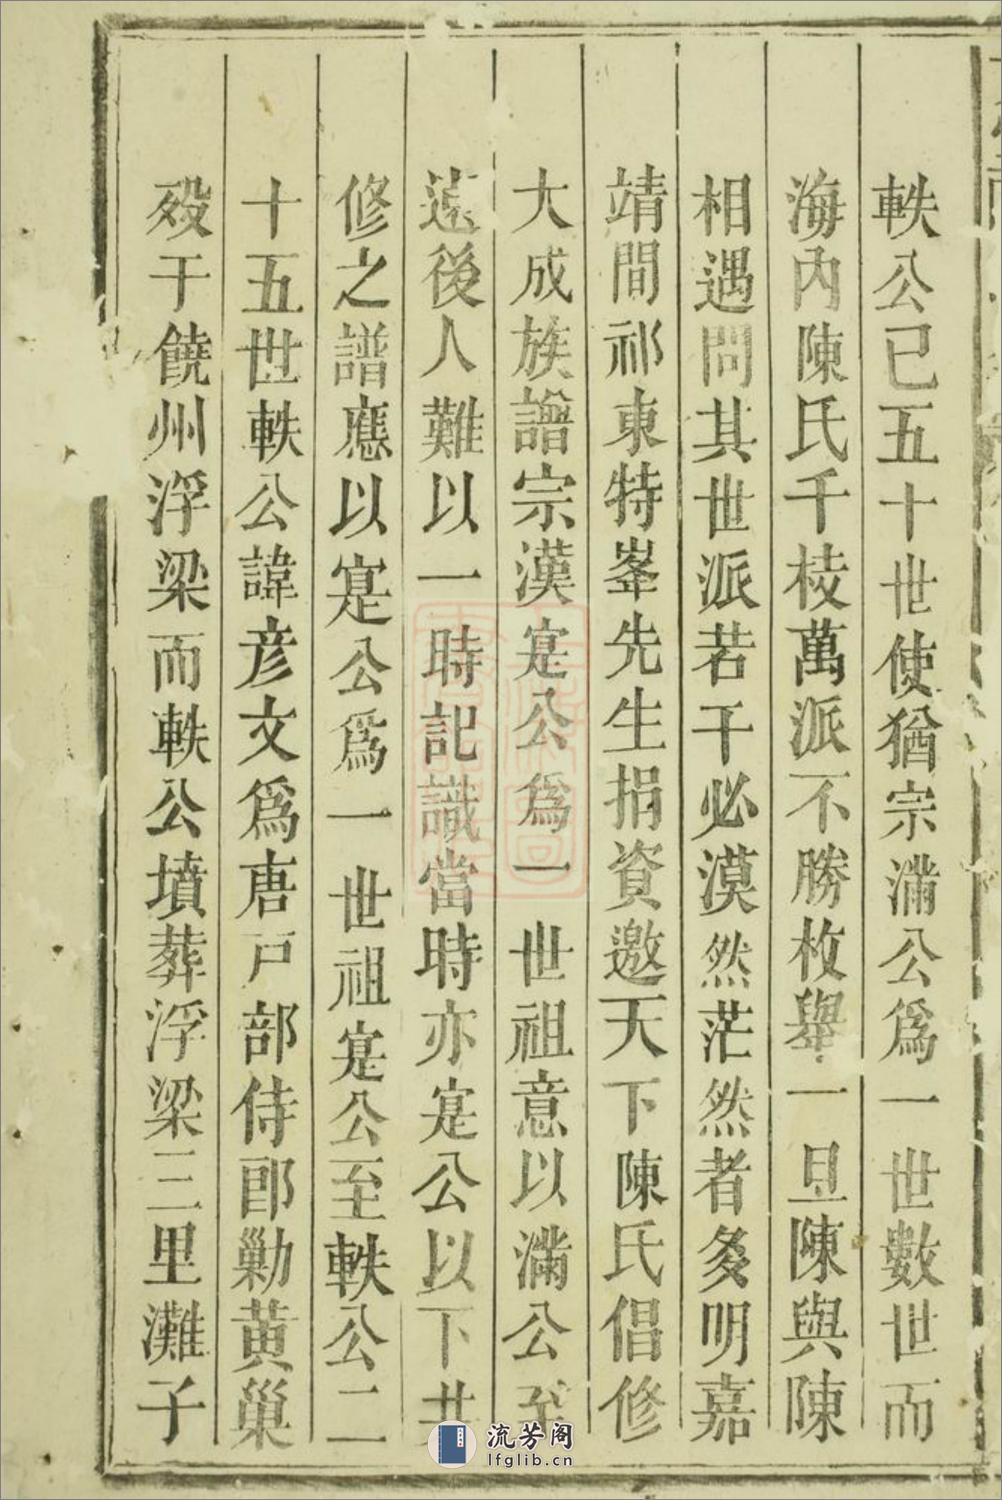 軼公已五十世使猶宗滿公爲一世數世而
海內陳氏千枝萬派不勝枚舉一旦陳與陳
相遇問其世派若干必漠然茫然者多明嘉
靖間祁東特峯先生捐資邀天下陳氏倡修
大成族譜宗漢寔公爲一世祖意以滿公至
遠後人難以一時記識當時亦寔公以下共
修之譜應以寔公爲一世祖寔公至軼公二
十五世軼公諱彦文爲唐戸部侍郎勦黄巢
歿于饒州浮梁而軼公墳葬浮梁三里灘子
流芳阁
lfglib.cn